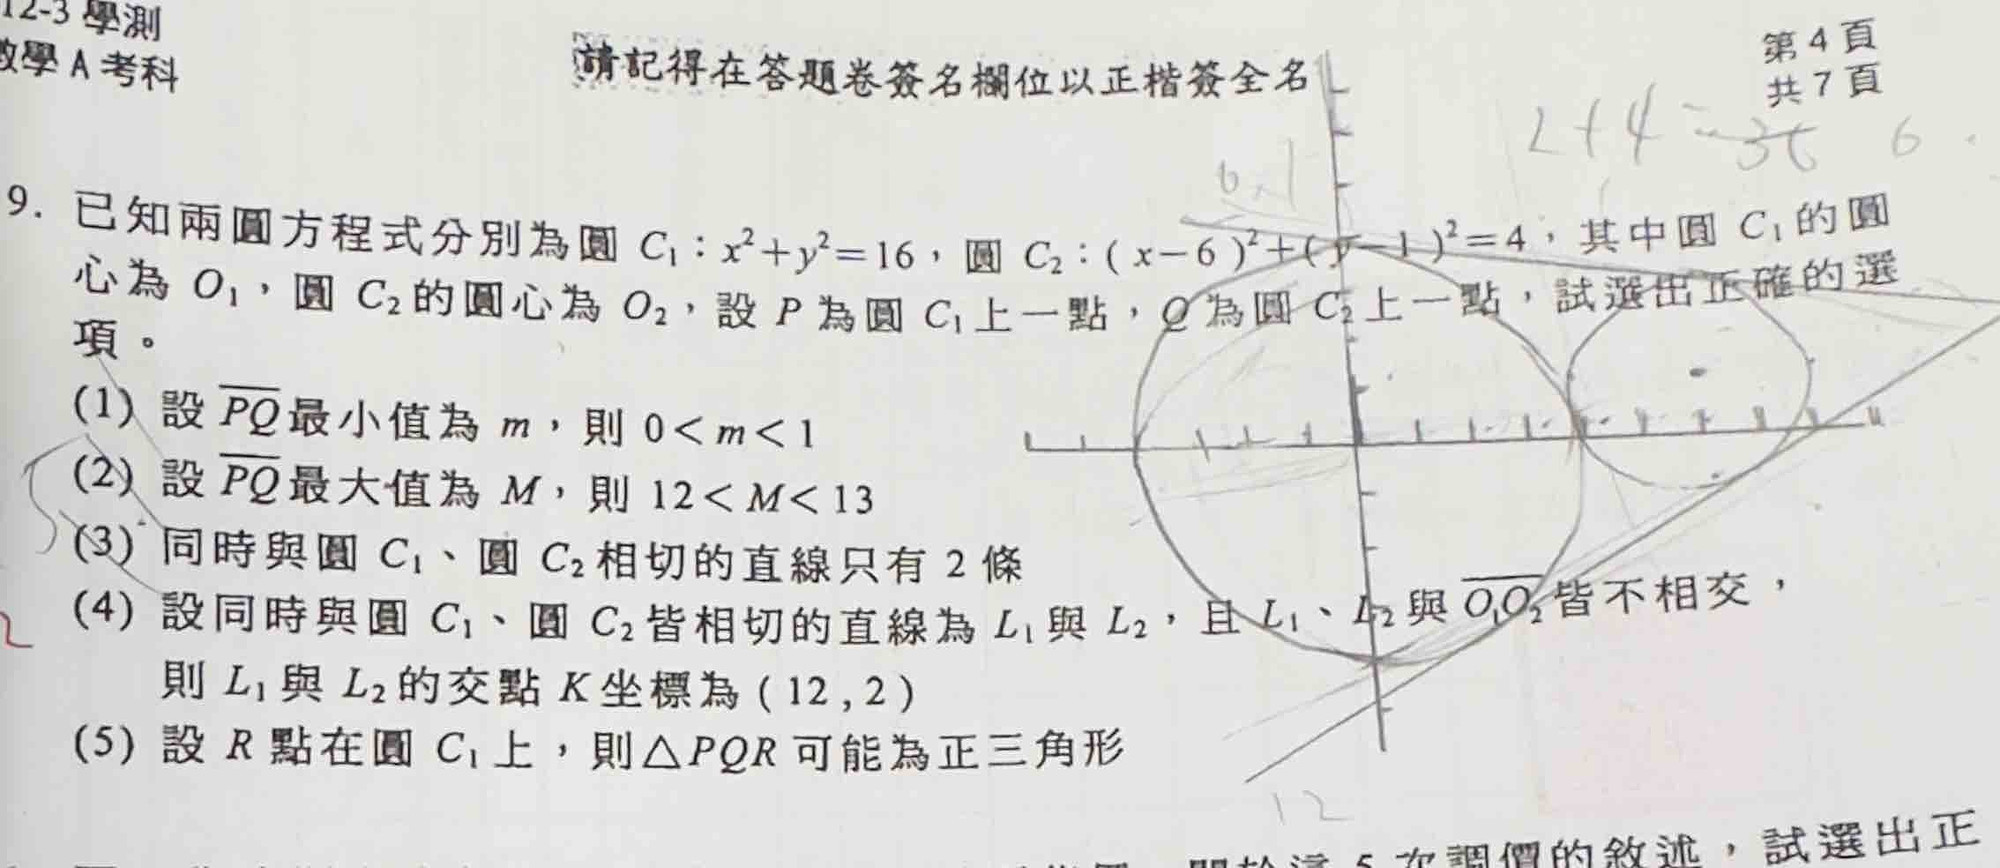 12-3 學測
數學 A 考科
請記得在答題卷簽名欄位以正楷簽全名
第 4 頁
共 7 頁
2+4 = 36 6
9. 已知兩圓方程式分別為圓 C₁:x²+y²=16,圓 C₂:(x-6)²+(y-1)²=4,其中圓 C₁的圓
心為 O₁,圓 C₂的圓心為 O₂,設 P 為圓 C₁上一點,Q 為圓 C₂上一點,試選出正確的選
項。
(1) 設 PQ 最小值為 m,則 0<m<1
(2) 設 PQ 最大值為 M,則 12<M<13
(3) 同時與圓 C₁、圓 C₂相切的直線只有 2 條
(4) 設同時與圓 C₁、圓 C₂皆相切的直線為 L₁與 L₂,且 L₁、L₂與 O₁O₂皆不相交,
則 L₁與 L₂的交點 K 坐標為(12,2)
(5) 設 R 點在圓 C₁上,則△PQR 可能為正三角形
12
5 次調價的敘述,試選出正